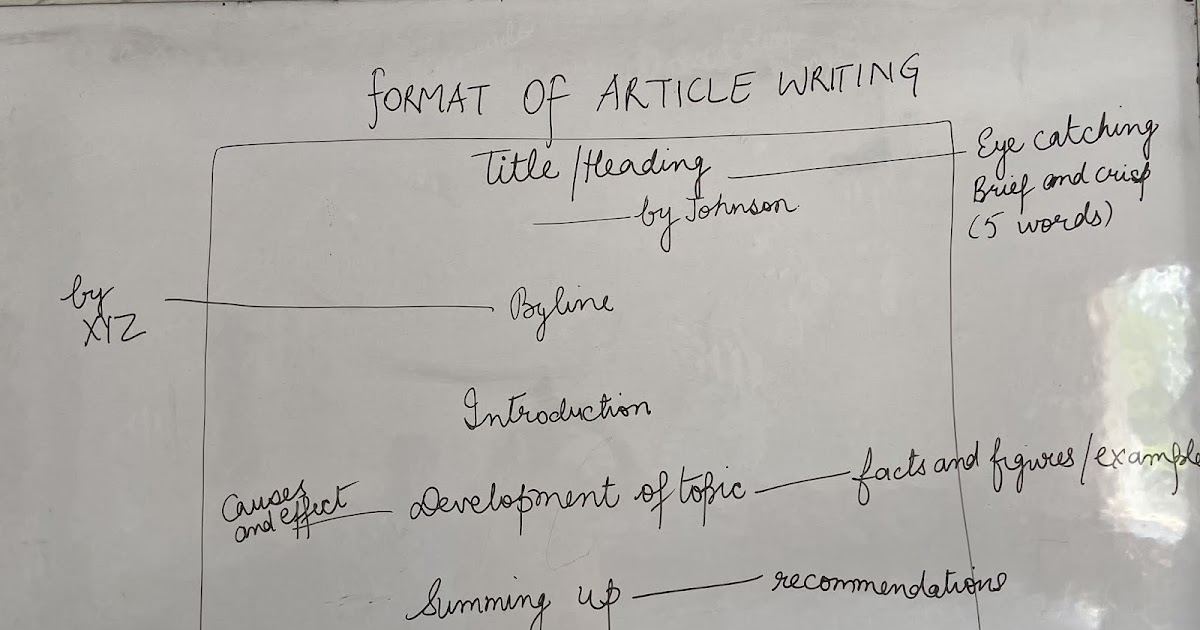 FORMAT OF ARTICLE WRITING
Title/Heading
Eye catching
Brief and crisp
(5 words)
by Johnson
by
XYZ
Byline
Introduction
Causes
and effect
Development of topic
facts and figures/example
Summing up
recommendations